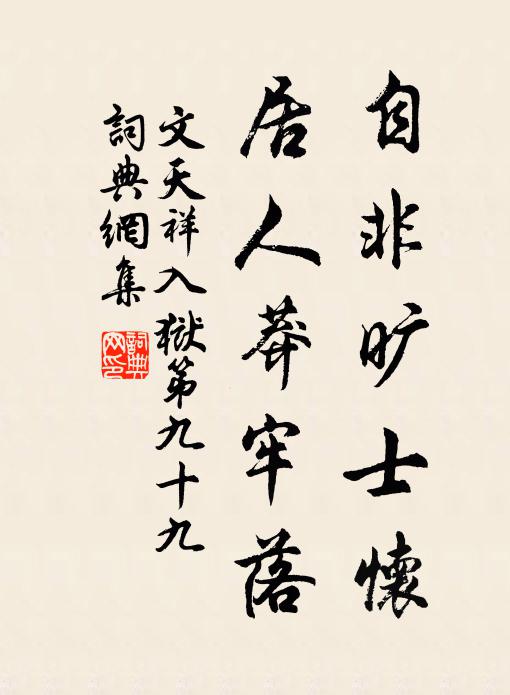 自非旷士懷
居人莽牢落
文天祥入獄第九十九
詞典網集
詞典网印